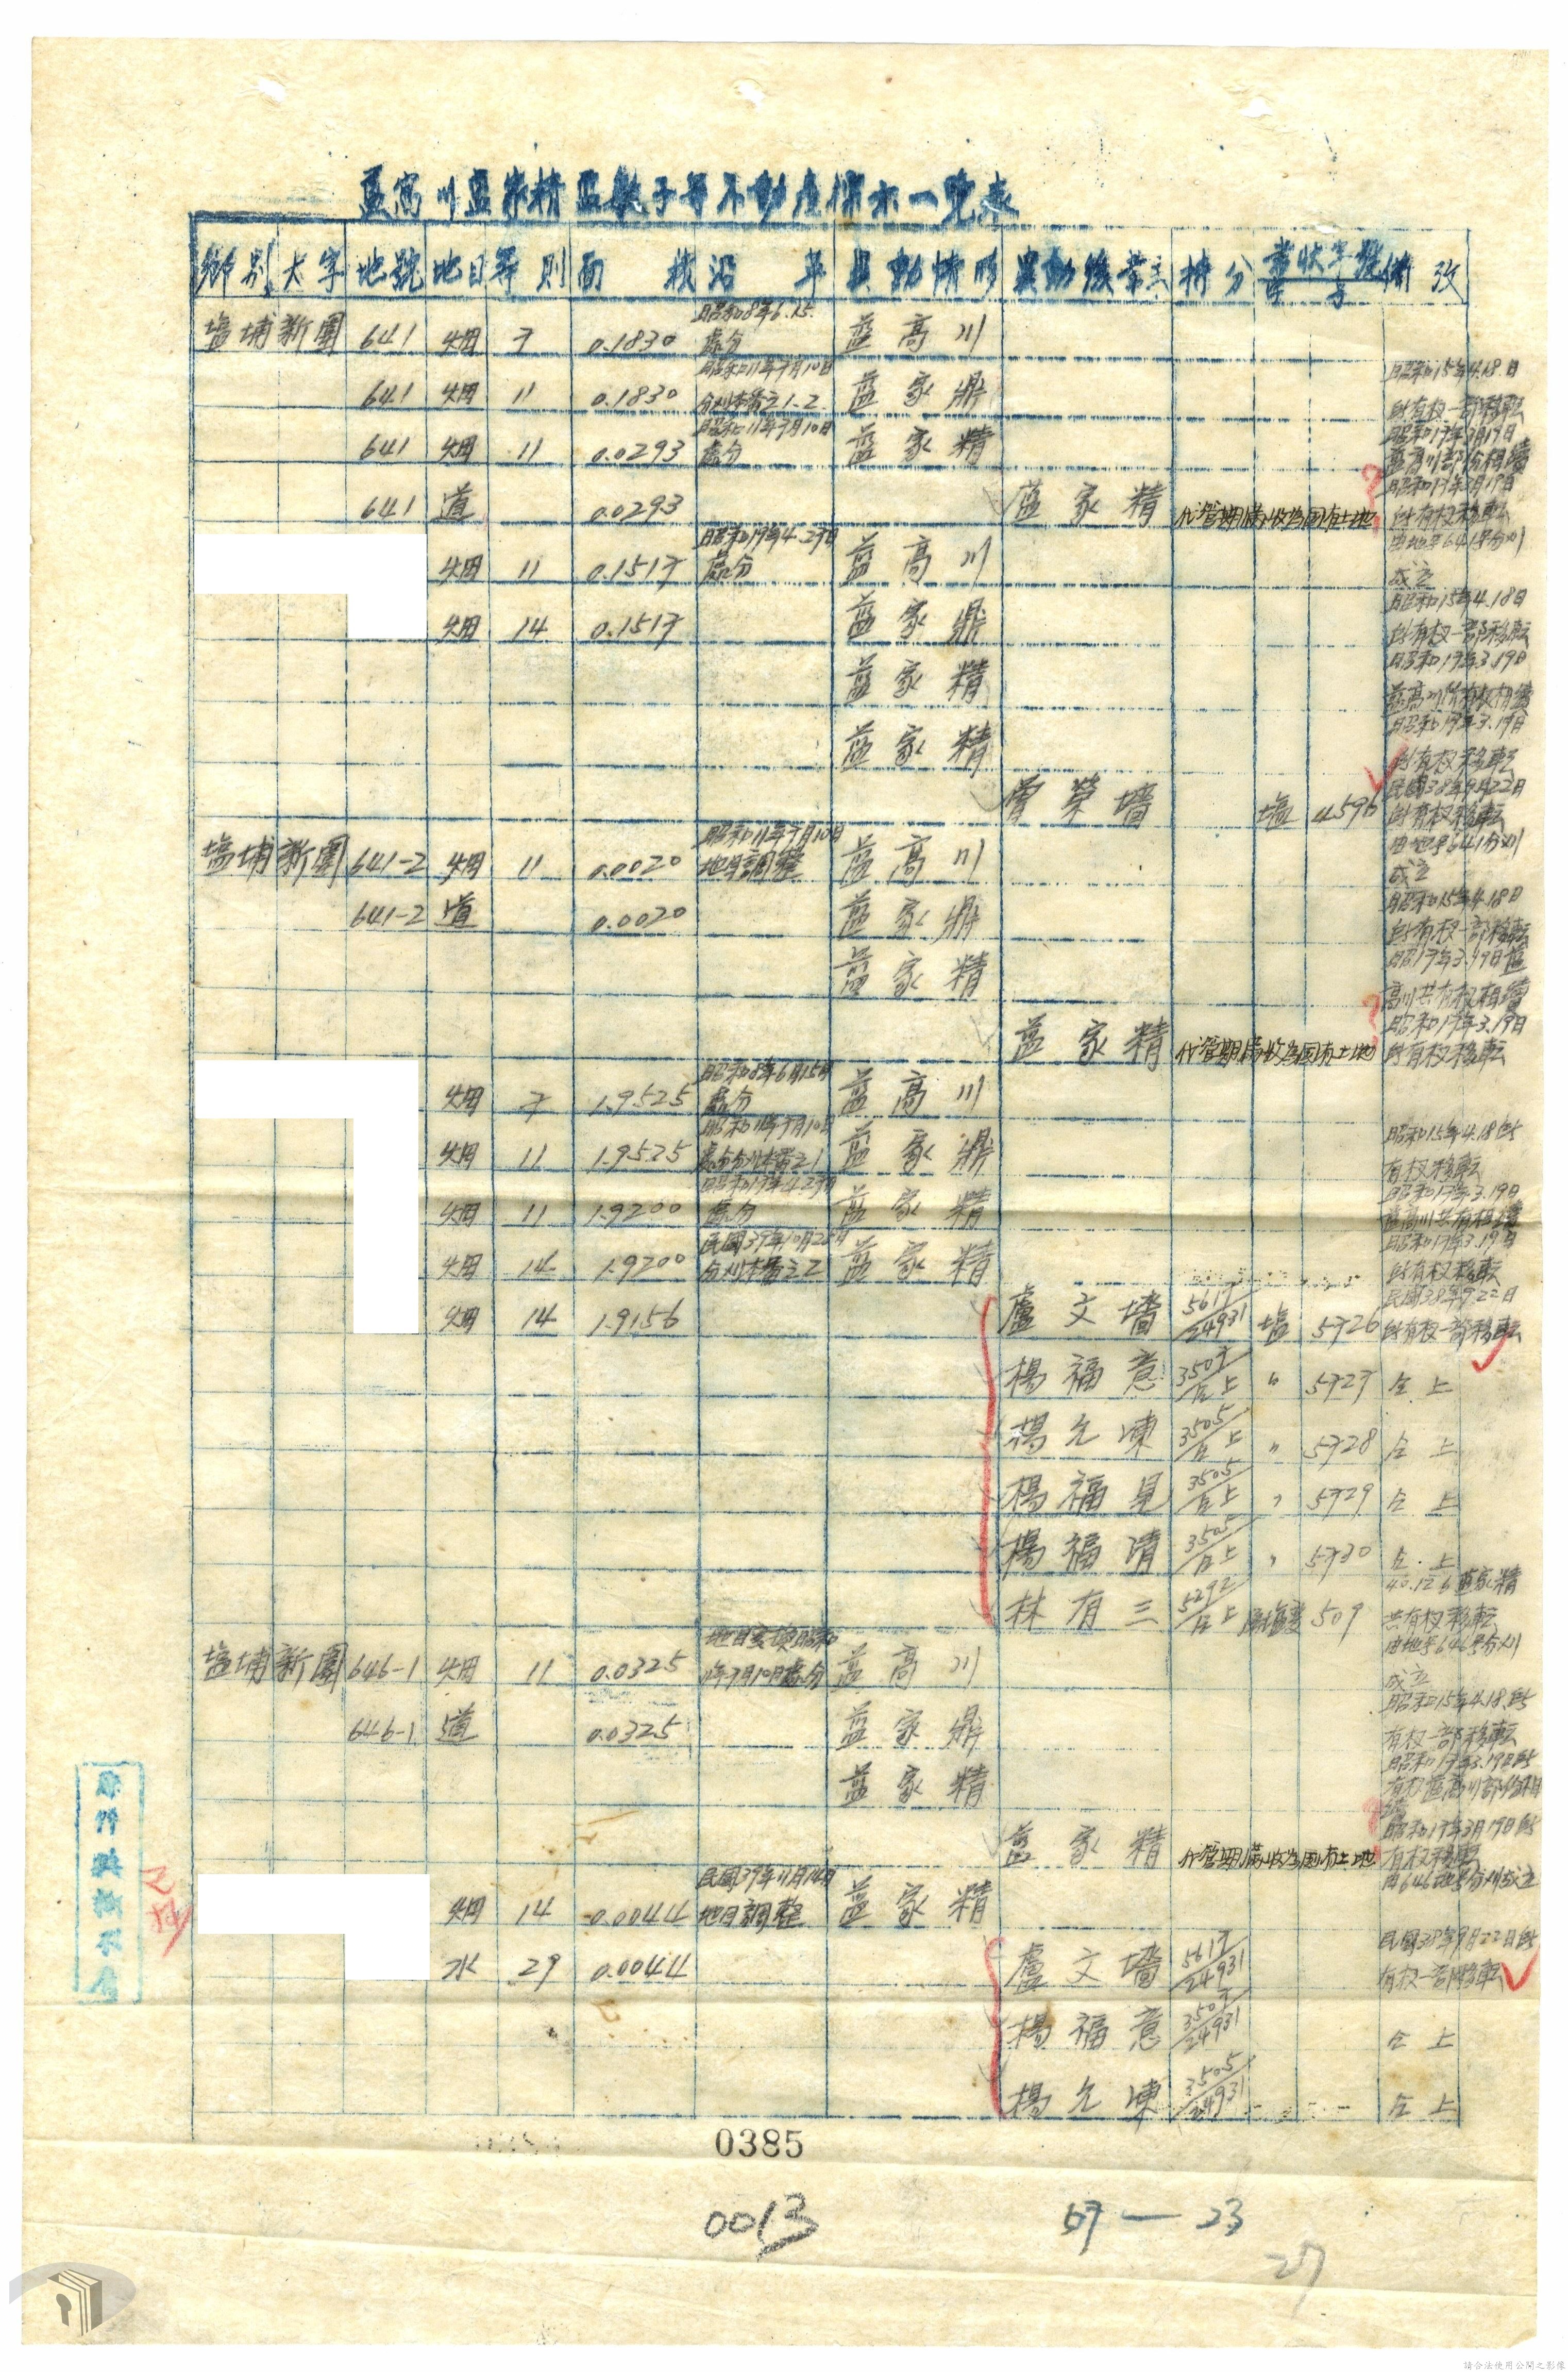 藍高川藍家精藍敏子等不動產標示一覽表
鄉別 大字 地號 地目 等則 面積 沿革 異動情形 異動後業主 持分 書狀字號 字 號 備攷
塩埔 新圍 641 畑 7 0.1830 昭和8年6.15.處分 藍高川
641 畑 11 0.1830 昭和11年7月10日分刈本番之1.2 藍家鼎 昭和15年4.18.日所有权一部移転
641 畑 11 0.0293 昭和11年7月10日處分 藍家精 昭和17年3月19日藍高川部分相續
641 道 0.0293 藍家精 代管期滿收為國有土地 昭和17年3月19日所有权移転
畑 11 0.1517 昭和17年4.27日處分 藍高川 由地号641号分刈成立
畑 14 0.1517 藍家鼎 昭和15年4.18日所有权一部移転
藍家精 昭和17年3.19日藍高川所有权相續
藍家精 昭和17年3.19日所有权移転
曾榮墻 塩 4596 民國38年9月22日所有权移転
塩埔 新圍 641-2 畑 11 0.0020 昭和11年7月10日地目調整 藍高川 由地号641分刈成立
641-2 道 0.0020 藍家鼎 昭和15年4.18日所有权一部移転
藍家精 昭17年3.19日藍高川共有权相續
藍家精 代管期滿收為國有土地 昭和17年3.19日所有权移転
畑 7 1.9525 昭和8年6月15日處分 藍高川
畑 11 1.9525 昭和11年7月10日處分分刈本番之1 藍家鼎 昭和15年4.18所有权移転
畑 11 1.9200 昭和17年4.27日處分 藍家精 昭和17年3.19日藍高川共有相續
畑 14 1.9200 民國39年10月25日分刈本番之2 藍家精 昭和17年3.19日所有权移転
畑 14 1.9156 盧文墻 5617/24931 塩 5726 民國38年9.22日所有权一部移転
楊福意 3507/仝上 〃 5727 仝上
楊允陳 3505/仝上 〃 5728 仝上
楊福見 3505/仝上 〃 5729 仝上
楊福清 3505/仝上 〃 5730 仝上
林有三 5292/仝上 509 40.12.6藍家精共有权移転
塩埔 新圍 646-1 畑 11 0.0325 地目变換昭和11年7月10日處分 藍高川 由地号646号分刈成立
646-1 道 0.0325 藍家鼎 昭和15年4.18.所有权一部移転
藍家精 昭和17年3.19日所有权藍高川部份相續
藍家精 代管期滿收為國有土地 昭和17年3月19日所有权移転
畑 14 0.0044 民國39年11月14日地目調整 藍家精 由646地号分刈成立
水 29 0.0044 盧文墻 5617/24931 民國38年9月22日所有权一部移転
楊福意 3507/24931 仝上
楊允陳 3505/24931 仝上
0385
0013
67—23
27
請合法使用公開之影像